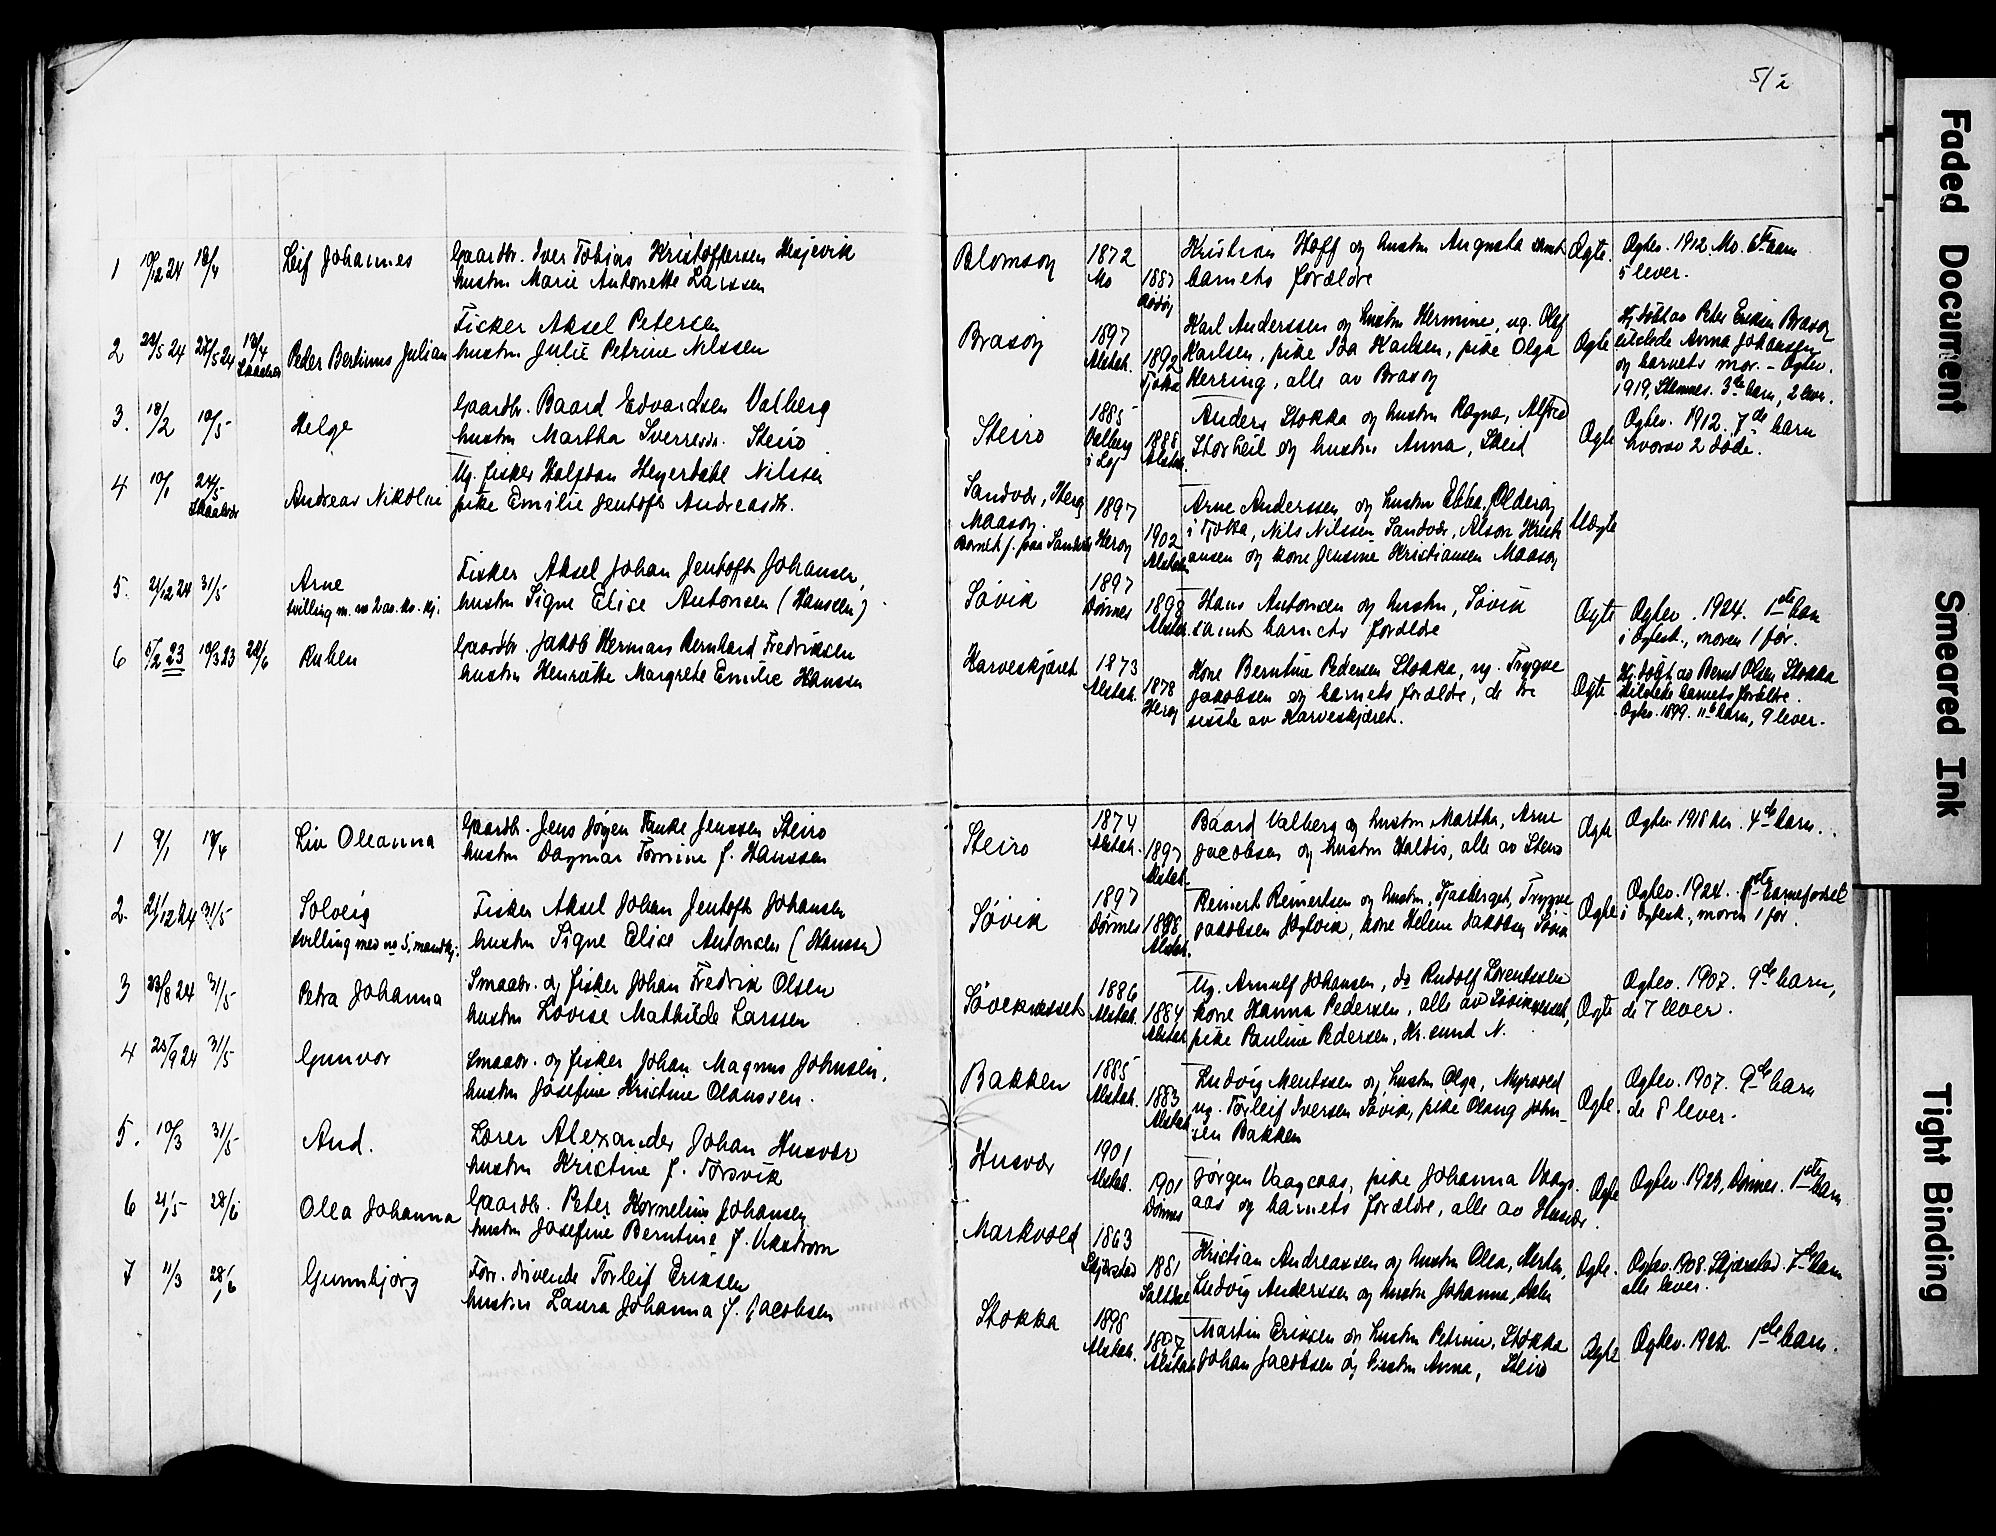 5/2
1 10/12 24 13/4 Leif Johannes
Gaardbr. Iver Tobias Kristoffersen Hesjevik
hustru Marie Antonette Larssen
Blomsøy 1872 Mo 1887
Kristian Hoff og hustru Augusta samt
barnets forældre
Ægte.
Ægtev. 1912. Mo. 6te barn
5 lever.
2 24 24 13/4 Peder Bertinus Julian
Fisker Aksel Petersen
hustru Julie Petrine Nilssen
Brasøy 1897 Alstah. 1892 Tjøtta
Karl Anderssen og hustru Hermine, ug. Olaf
Karlsen, pike Ida Karlsen, pike Olga
Herring, alle av Brasøy
Ægte
Hj.døbt av Peter Eriksen Brasøy
tilstede Anna Johansen
og barnets mor. - Ægtev.
1919, Stamnes. 3die barn, 2 lever.
3. 18/2 10/5 Helge
Gaardbr. Baard Edvardsen Valberg
hustru Martha Sverresdr. Steiro
Steiro 1885 Valberg i Lof. 1888 Alstah.
Anders Stokka og hustru Ragna, Alfred
Storheil og hustru Anna, Skeid
Ægte
Ægtev. 1912. 7de barn
hvorav 2 døde.
4 10/1 24/5 Andreas Nikolai
Ug. fisker Halfdan Heyerdahl Nilssen
pike Emilie Jentoft Andreasdr.
Sandvær, Herøy
Maasøy.
Barnet f. paa Sandvær
1897 Herøy 1902 Alstah.
Arne Anderssen og hustru Ebba, Olderøy
i Tjøtta, Nils Nilssen Sandvær, Alson Kristi-
ansen og kone Jensine Kristiansen Maasøy
Uægte
5. 21/12 24 31/5 Arne
tvilling m. no 2 av. kv. kj.
Fisker Aksel Johan Jentoft Johansen,
hustru Signe Elise Antonsen (Hanssen)
Søvik 1897 Dønnes 1898 Alstah.
Hans Antonsen og hustru, Søvik
samt barnets forældre
Ægte
Ægtev. 1924. 1ste barn
i Ægtesk., moren 1 før.
6 5/2 23 10/3 23 22/6 Ruben
Gaardbr. Jakob Herman Bernhard Fredriksen
hustru Henriette Margrete Emilie Hanssen
Karveskjæret 1873 Alstah. 1878 Herøy
Kone Berntine Pedersen Stokka, ug. Trygve
Jakobsen og barnets forældre, de tre
sidste av Karveskjæret.
Ægte
Hj.døpt av Bernt Olsen Stokka
tilstede barnets forældre.
Ægtev. 1899. 11te barn, 9 lever.
1 9/1 13/4 Liv Oleanna
Gaardbr. Jens Jørgen Tanke Jenssen Steiro
hustru Dagmar Tomine f. Hanssen
Steiro 1874 Alstah. 1897 Alstah.
Baard Valberg og hustru Martha, Arne
Jacobsen og hustru Haldis, alle av Steiro
Ægte
Ægtev 1918 her. 4de barn.
2. 21/12 24 31/5 Solveig
tvilling med no 5, mandkj.
Fisker Aksel Johan Jentoft Johansen
hustru Signe Elise Antonsen (Hanssen)
Søvik 1897 Dønnes 1898 Alstah.
Reinert Reinertsen og hustru, Tjasberget, Trygve
Jakobsen Søvik, kone Helene Jakobsen Søvik
Ægte
Ægtev. 1924. 1ste barnefødsel
i Ægtesk., moren 1 før.
3 23/8 24 31/5 Petra Johanna
Smaabr. og fisker Johan Fredrik Olsen
hustru Lovise Mathilde Larssen
Søviknesset 1886 Alstah. 1884 Alstah.
Ug. Arnulf Johansen, do Rudolf Lorentssen
kone Hanna Pedersen, alle av Søviknesset,
pike Pauline Pedersen, Kr.sund N.
Ægte
Ægtev. 1907. 9de barn,
de 7 lever.
4 25/9 24 31/5 Gunvor
Smaabr. og fisker Johan Magnus Johnsen,
hustru Josefine Kristine Olaussen.
Bakken 1885 Alstah. 1883 Alstah.
Ludvig Mentssen og hustru Olga, Myrvold
ug. Torleif Iversen Søvik, pike Olaug John-
sen Bakken
Ægte.
Ægtev. 1907. 9de barn
de 8 lever.
5. 10/3 31/5 Aud.
Lærer Alexander Johan Husvær
hustru Kristine f. Forsvik
Husvær 1901 Alstah. 1901 Dønnes
Jørgen Vaagaas, pike Johanna Vaag-
aas og barnets forældre, alle av Husvær.
Ægte
Ægtev. 1923, Dønnes. 1ste barn
6 21/5 28/6 Olea Johanna
Gaardbr. Peter Kornelius Johansen
hustru Josefine Berntine f. Vasstrøm
Markvold 1863 Skjerstad 1881 Saltdal
Kristian Andreassen og hustru Olea, Merten,
Ludvig Anderssen og hustru Johanna,
Ægte.
Ægtev. 1908. Skjerstad. 7de barn
alle lever.
7 11/3 28/6 Gunnbjørg
Forr. drivende Torleif Eriksen
hustru Laura Johanna f. Jacobsen
Stokka 1898 Alstah. 1897 Alstah.
Martin Eriksen og hustru Petrine, Stokka
Johan Jacobsen og hustru Anna, Steiro
Ægte
Ægtev. 1922. 1ste barn.
Faded Document
Smeared Ink
Tight Binding